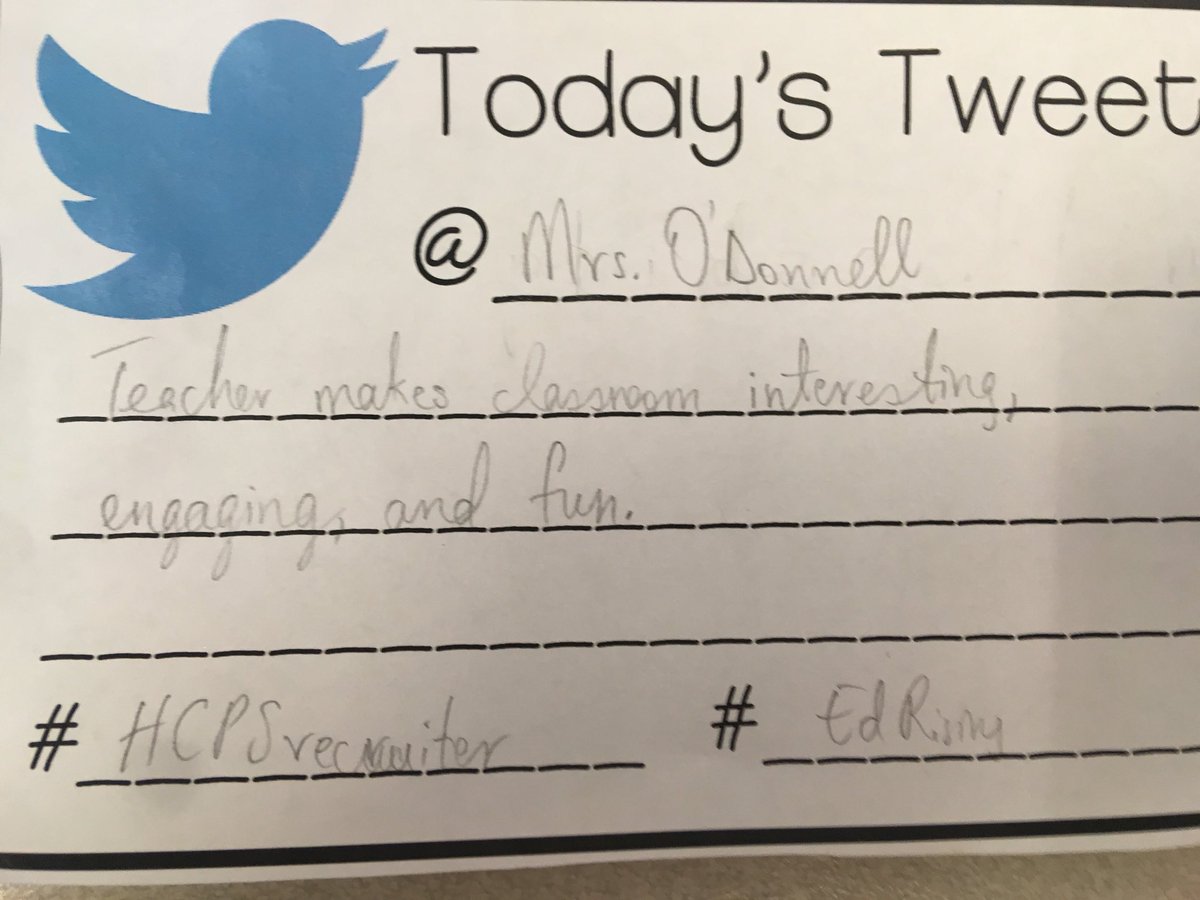 Today's Tweet
@ Mrs. O'Donnell
Teacher makes classroom interesting,
engaging, and fun.
# HCPSrecruiter # EdRising